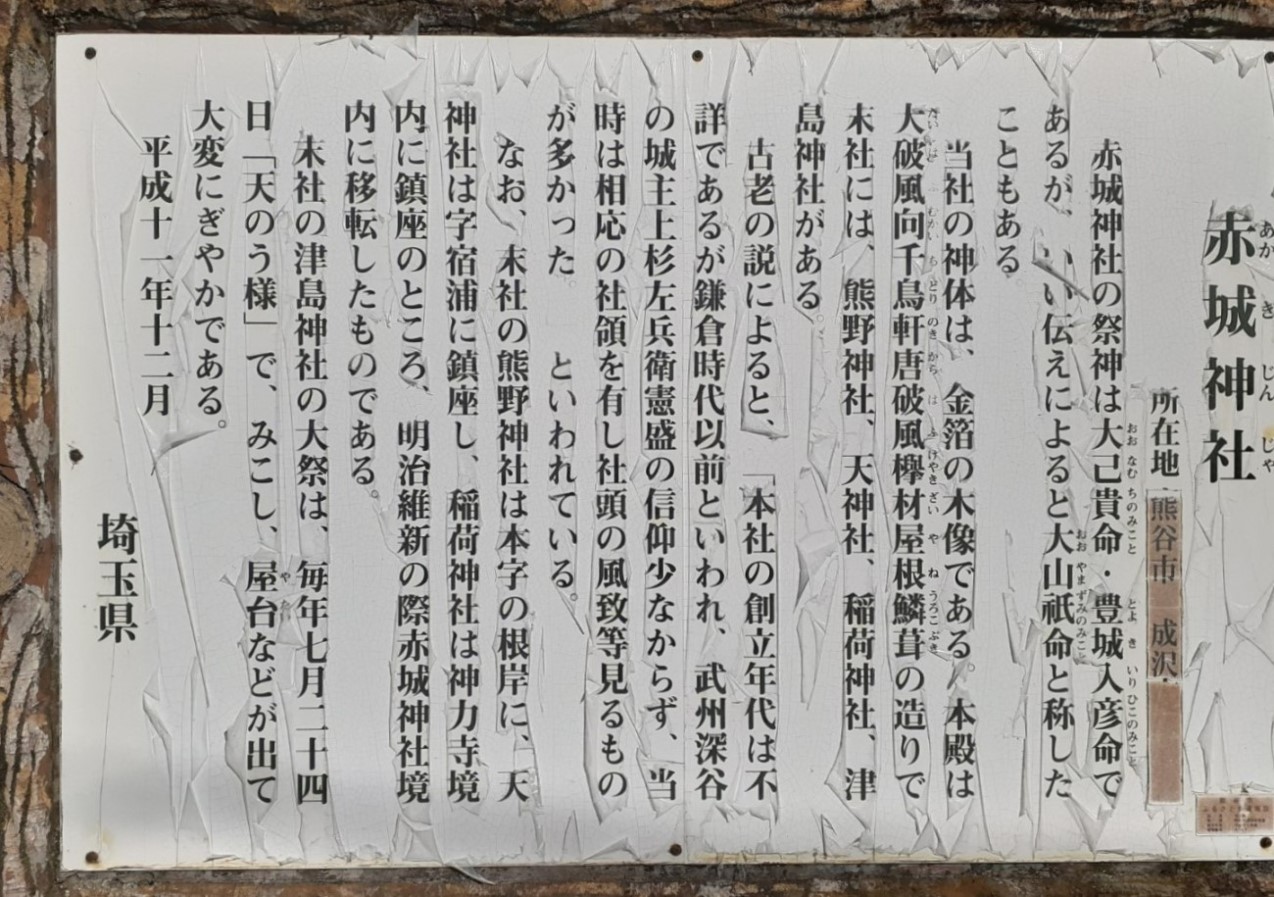 赤城神社
所在地 熊谷市 成沢
赤城神社の祭神は大己貴命・豊城入彦命で
あるが、いい伝えによると大山祇命と称した
こともある。
当社の神体は、金箔の木像である。本殿は
大破風向千鳥軒唐破風欅材屋根鱗葺の造りで
末社には、熊野神社、天神社、稲荷神社、津
島神社がある。
古老の説によると、「本社の創立年代は不
詳であるが鎌倉時代以前といわれ、武州深谷
の城主上杉左兵衛憲盛の信仰少なからず、当
時は相応の社領を有し社頭の風致等見るもの
が多かった。 といわれている。
なお、末社の熊野神社は本字の根岸に、天
神社は字宿浦に鎮座し、稲荷神社は神力寺境
内に鎮座のところ、明治維新の際赤城神社境
内に移転したものである。
末社の津島神社の大祭は、毎年七月二十四
日「天のう様」で、みこし、屋台などが出て
大変にぎやかである。
平成十一年十二月
埼玉県